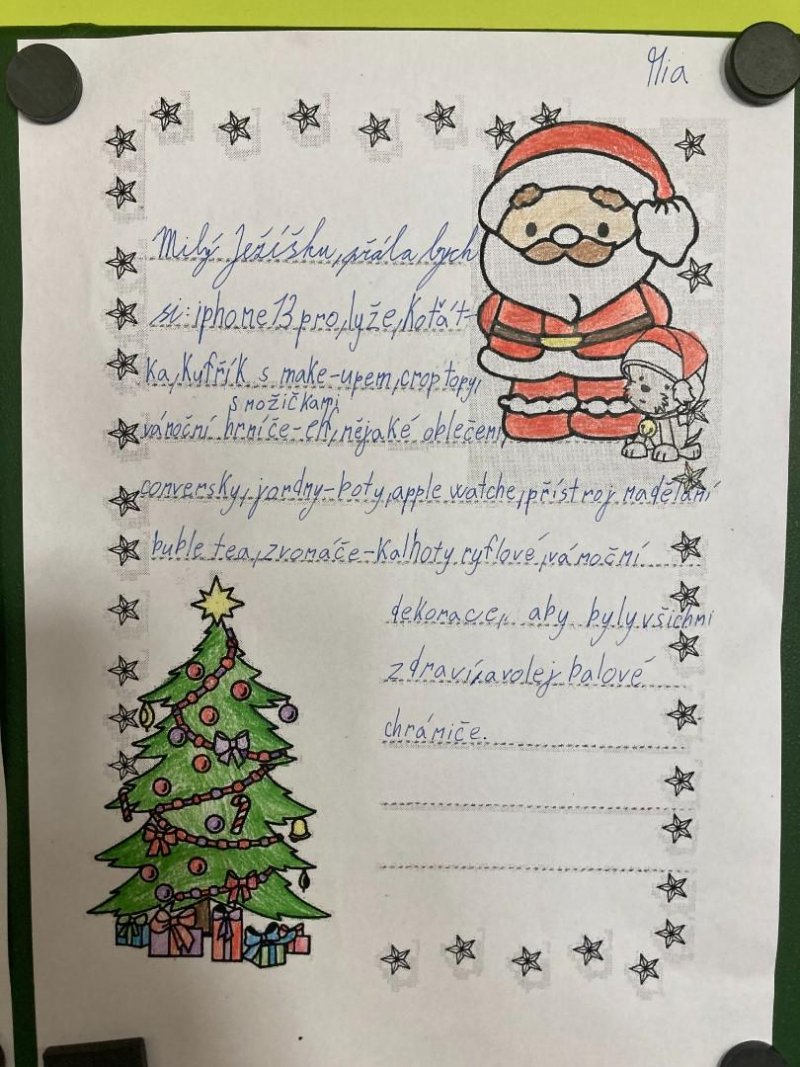 Mia
Milý Ježíšku, přála bych
si: iphone 13 pro, lyže, koťát-
ka, kufřík s make-upem, crop topy,
s nožičkami
vánoční hrníče-ek, nějaké oblečení,
conversky, jordny-boty, apple watche, přístroj nadělání
buble tea, zvonáče-kalhoty ryflové, vánoční
dekorace, aby byly všichni
zdraví, a volejbalové
chrániče.